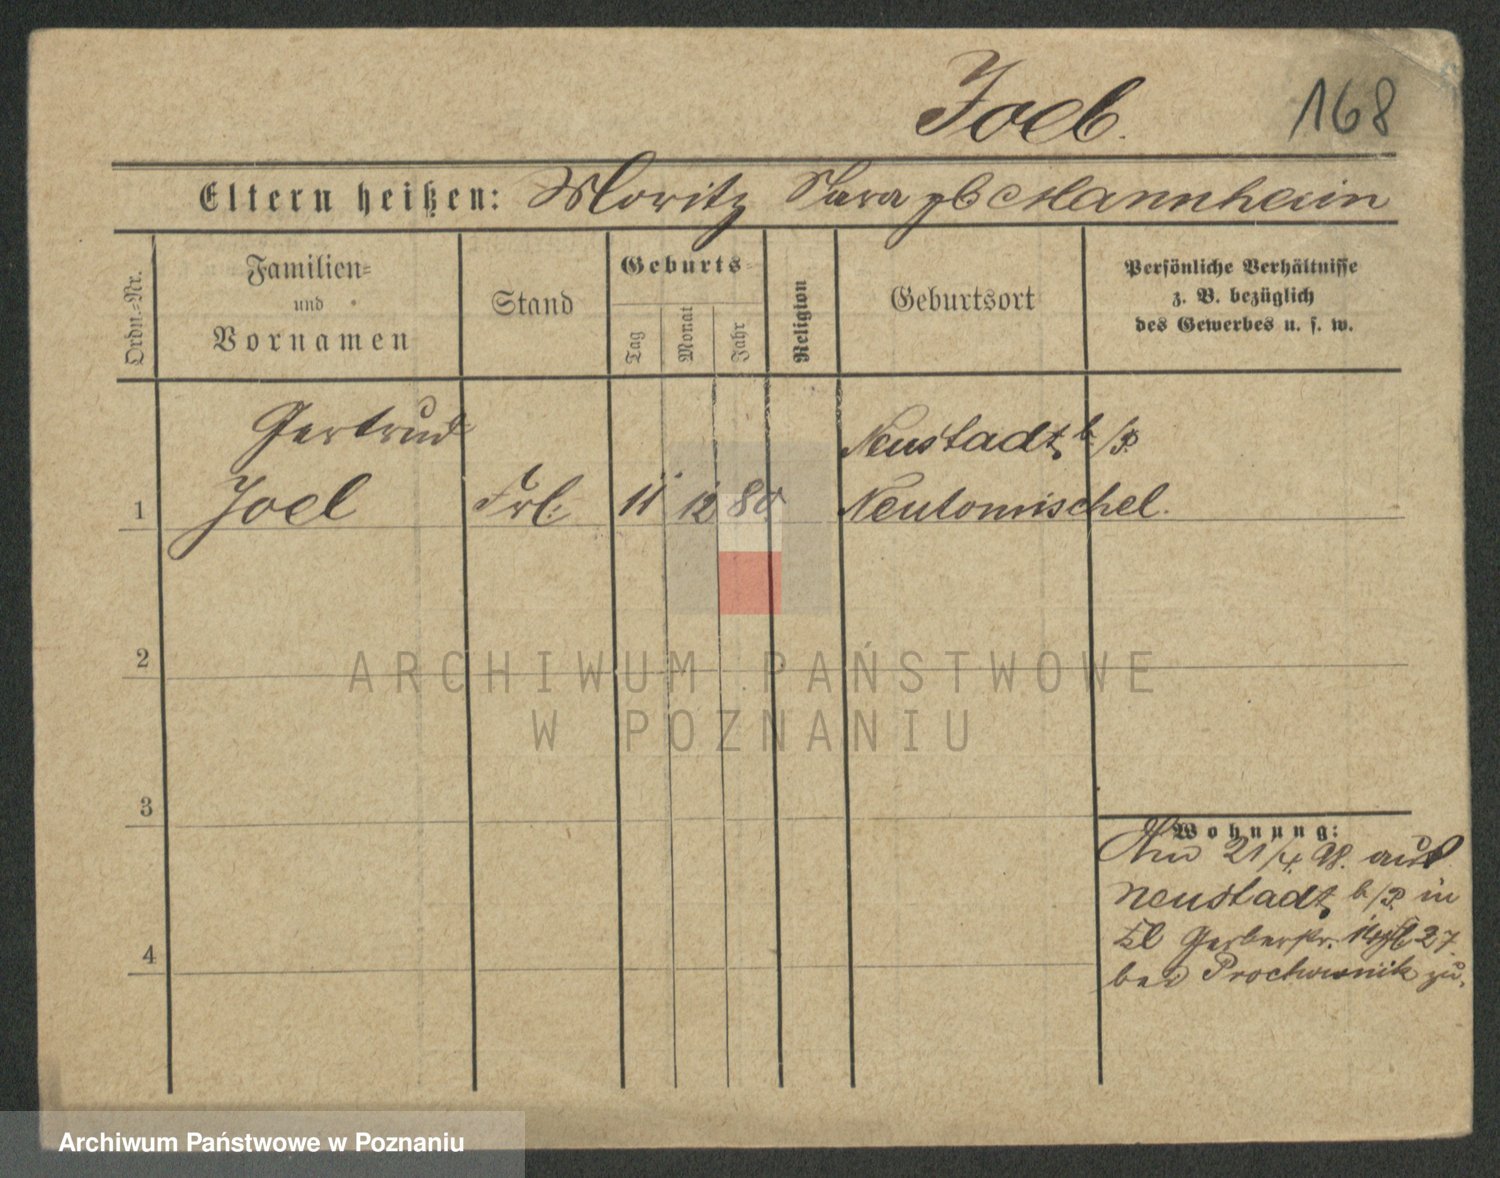 Joel.
168
Eltern heißen: Moritz Sara gb Mannheim
Ordn.-Nr.
Familien-
und
Vornamen
Stand
Geburts-
Tag
Monat
Jahr
Religion
Geburtsort
Persönliche Verhältnisse
z. B. bezüglich
des Gewerbes u. s. w.
Gertrud
Neustadt b/P.
1 Joel Frl. 11 12 80 Neutomischel.
2
ARCHIWUM PAŃSTWOWE
W POZNANIU
3
Wohnung:
21/4. 98. aus
Neustadt b/P. in
Kl Gerberstr. 27.
bei Prochownik zu.
4
Archiwum Państwowe w Poznaniu